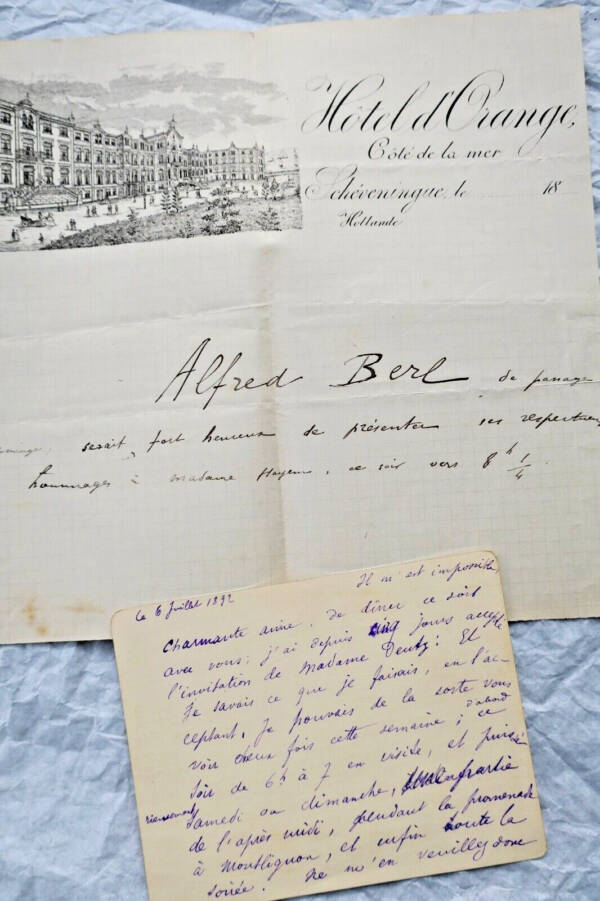 Hôtel d'Orange,
Côté de la mer
Schéveningue, le 18
Hollande
Alfred Berl de passage
serait fort heureux de présenter ses respectueux
hommages à Madame , ce soir vers 8 h 1/4.
le 6 Juillet 1892
Il m'est impossible,
charmante amie, de dîner ce soir
avec vous: j'ai depuis cinq jours accepté
l'invitation de Madame Deutz: Et
je savais ce que je faisais, en l'ac-
ceptant. Je pouvais de la sorte vous
voir deux fois cette semaine; ce
soir de 6h à 7 en visite, d'abord et puis
Samedi ou dimanche, en partie
de l'après midi, pendant la promenade
à Montlignon, et enfin toute la
soirée. Ne m'en veuillez donc